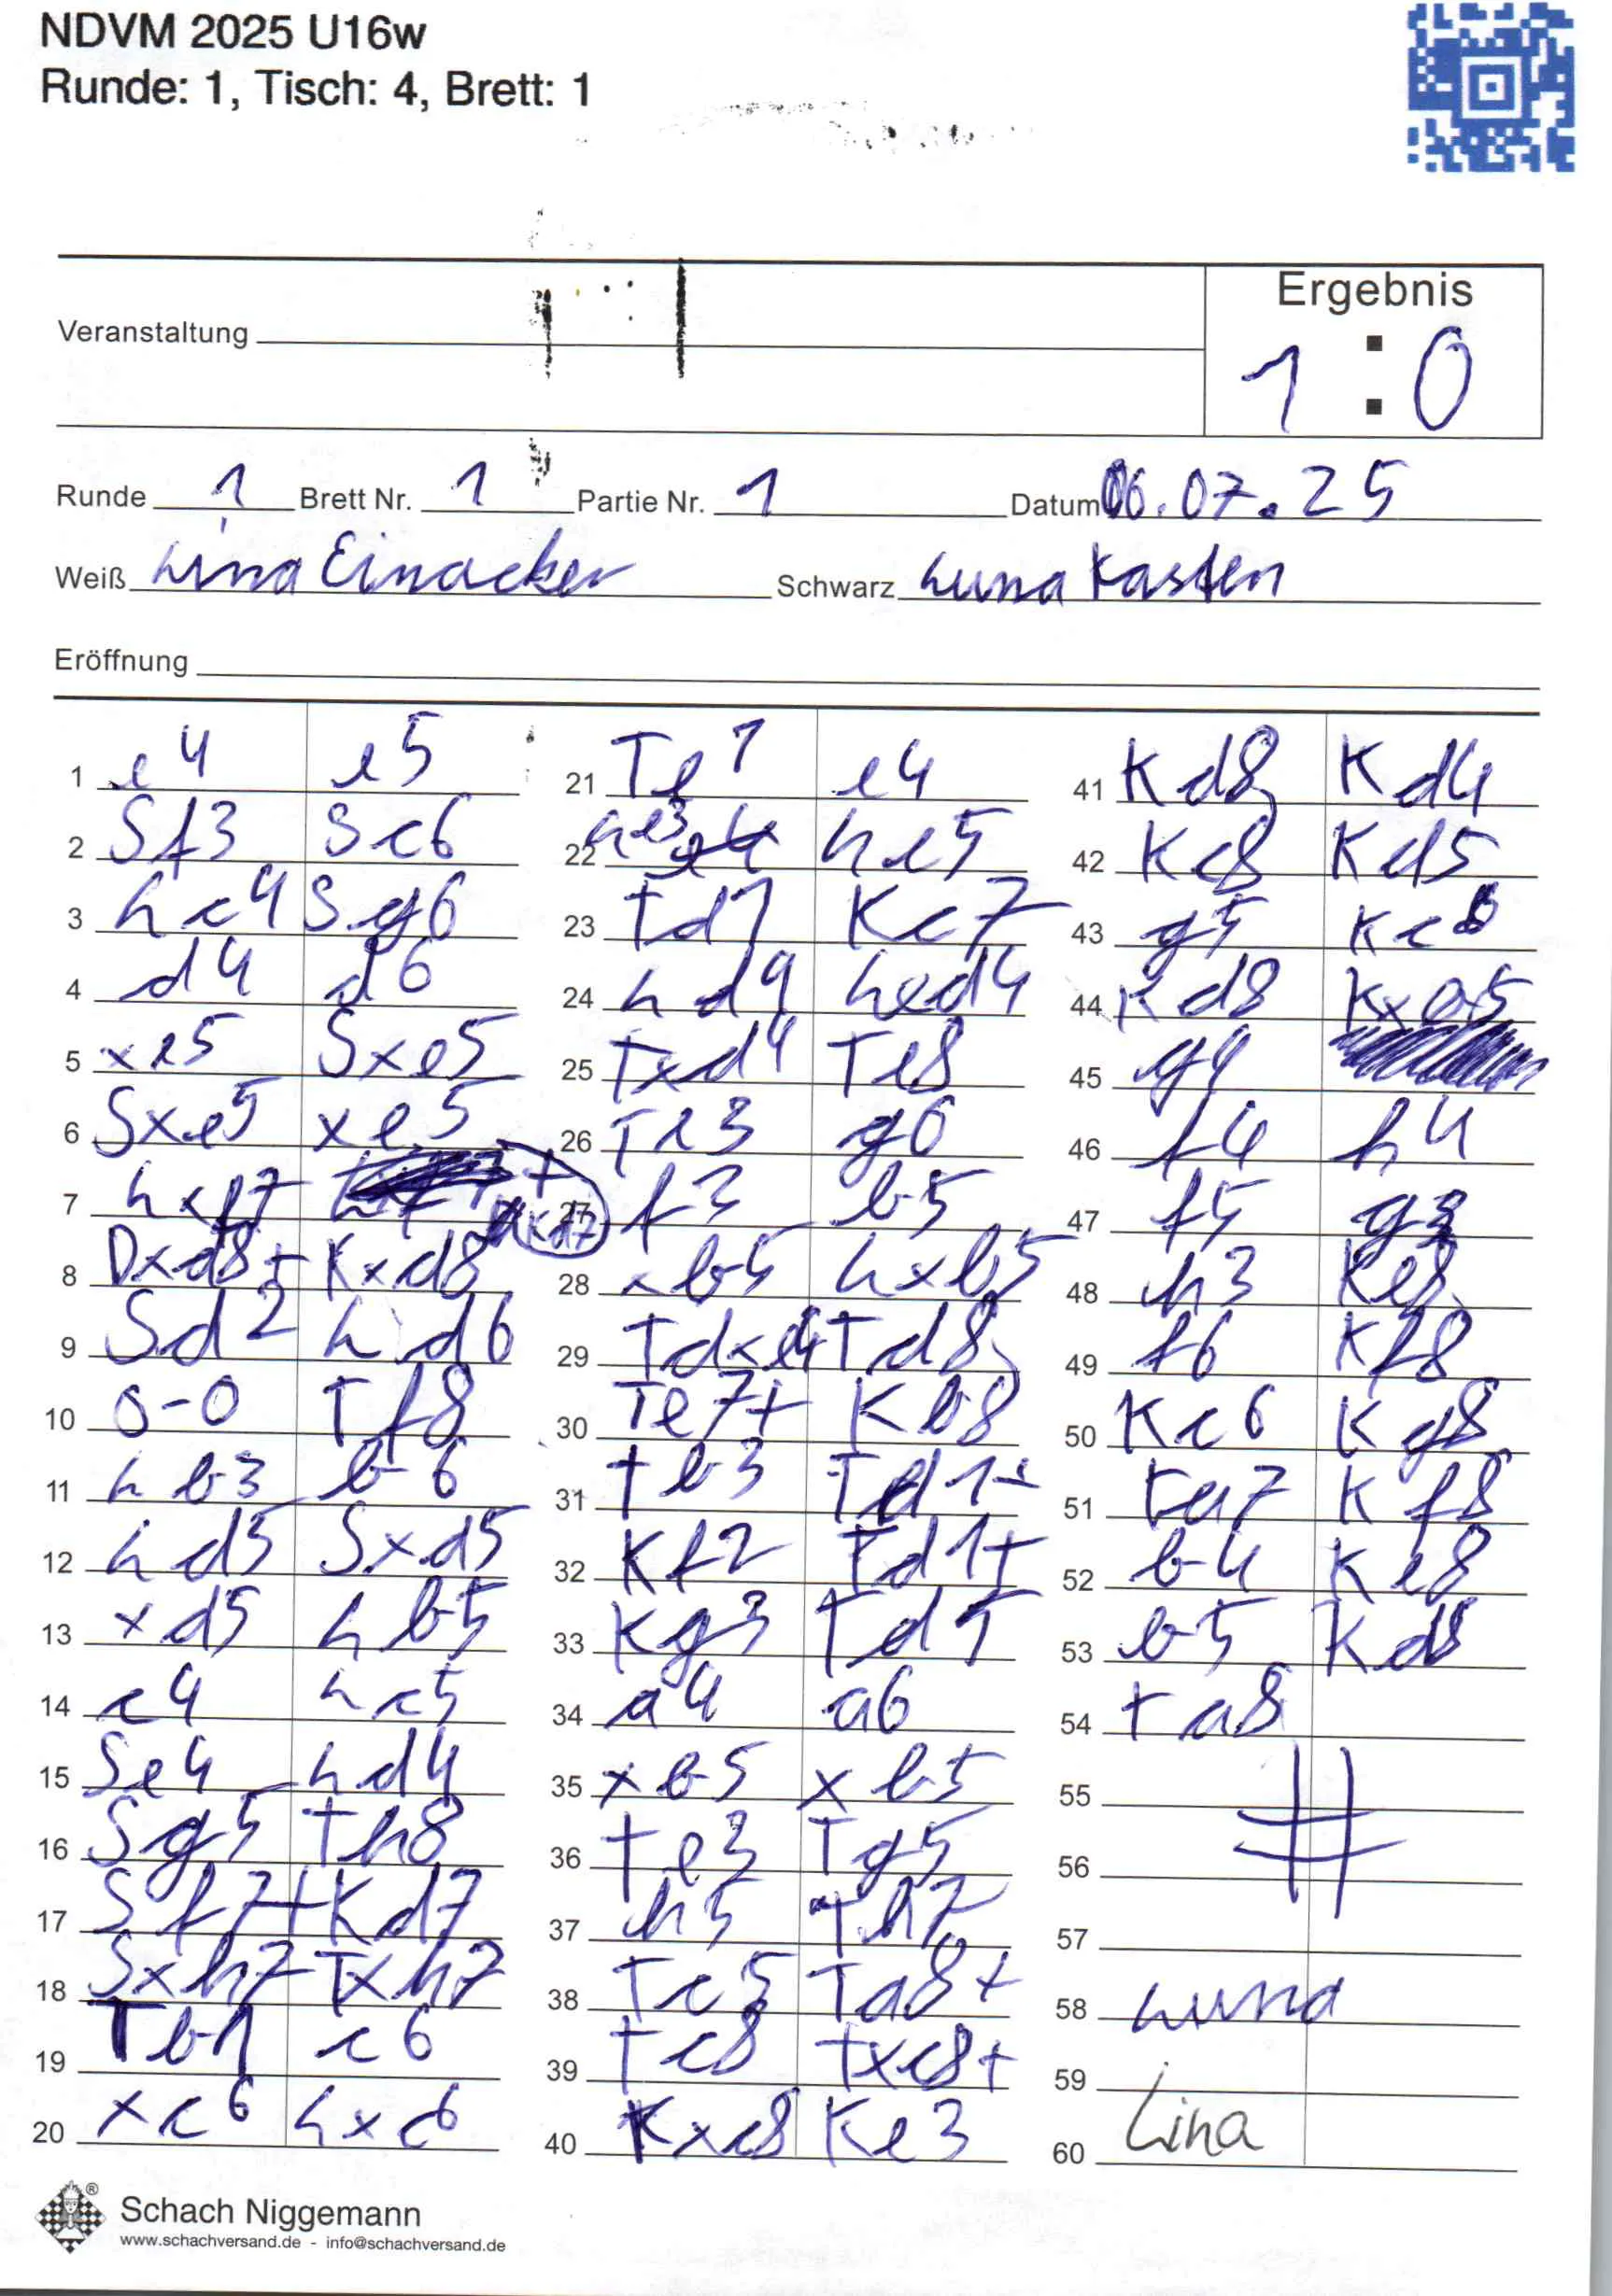 NDVM 2025 U16w
Runde: 1, Tisch: 4, Brett: 1
Ergebnis
1 : 0
Veranstaltung
Runde 1 Brett Nr. 1 Partie Nr. 1 Datum 06.07.25
Weiß Lina Einacker Schwarz Luna Kasten
Eröffnung
1 e4 e5
2 Sf3 Sc6
3 Lc4 Sg6
4 d4 d6
5 xe5 Sxe5
6 Sxe5 xe5
7 Lxf7 + Kd7
8 Dxd8+ Kxd8
9 Sd2 Ld6
10 0-0 Tf8
11 Lb3 b6
12 Ld5 Sxd5
13 xd5 Lb5
14 c4 Lc5
15 Se4 Ld4
16 Sg5 Th8
17 Sf7+ Kd7
18 Sxh7 Txh7
19 Tb1 c6
20 xc6 Lxc6
21 Te1 e4
22 Le3 Le5
23 Td1 Kc7
24 Ld4 Lxd4
25 Txd4 Te8
26 Te3 g6
27 f3 b5
28 xb5 Lxb5
29 Tdxe4 Td8
30 Te7+ Kb8
31 Tb3 Td1+
32 Kf2 Td1+
33 Kg3 Td5
34 a4 a6
35 xb5 xb5
36 Te3 Tg5
37 h5 Th7
38 Tc5 Ta8+
39 Tc8 Txc8+
40 Kxc8 Ke3
41 Kd8 Kd4
42 Kc8 Kd5
43 g5 Kc6
44 Kd8 Kxb5
45 g4
46 f4 h4
47 f5 g3
48 h3 Ke8
49 f6 Kf8
50 Kc6 Kg8
51 Ta7 Kf8
52 b4 Ke8
53 b5 Kd8
54 Ta8
55 #
56
57
58 Luna
59
60 Lina
Schach Niggemann
www.schachversand.de - info@schachversand.de